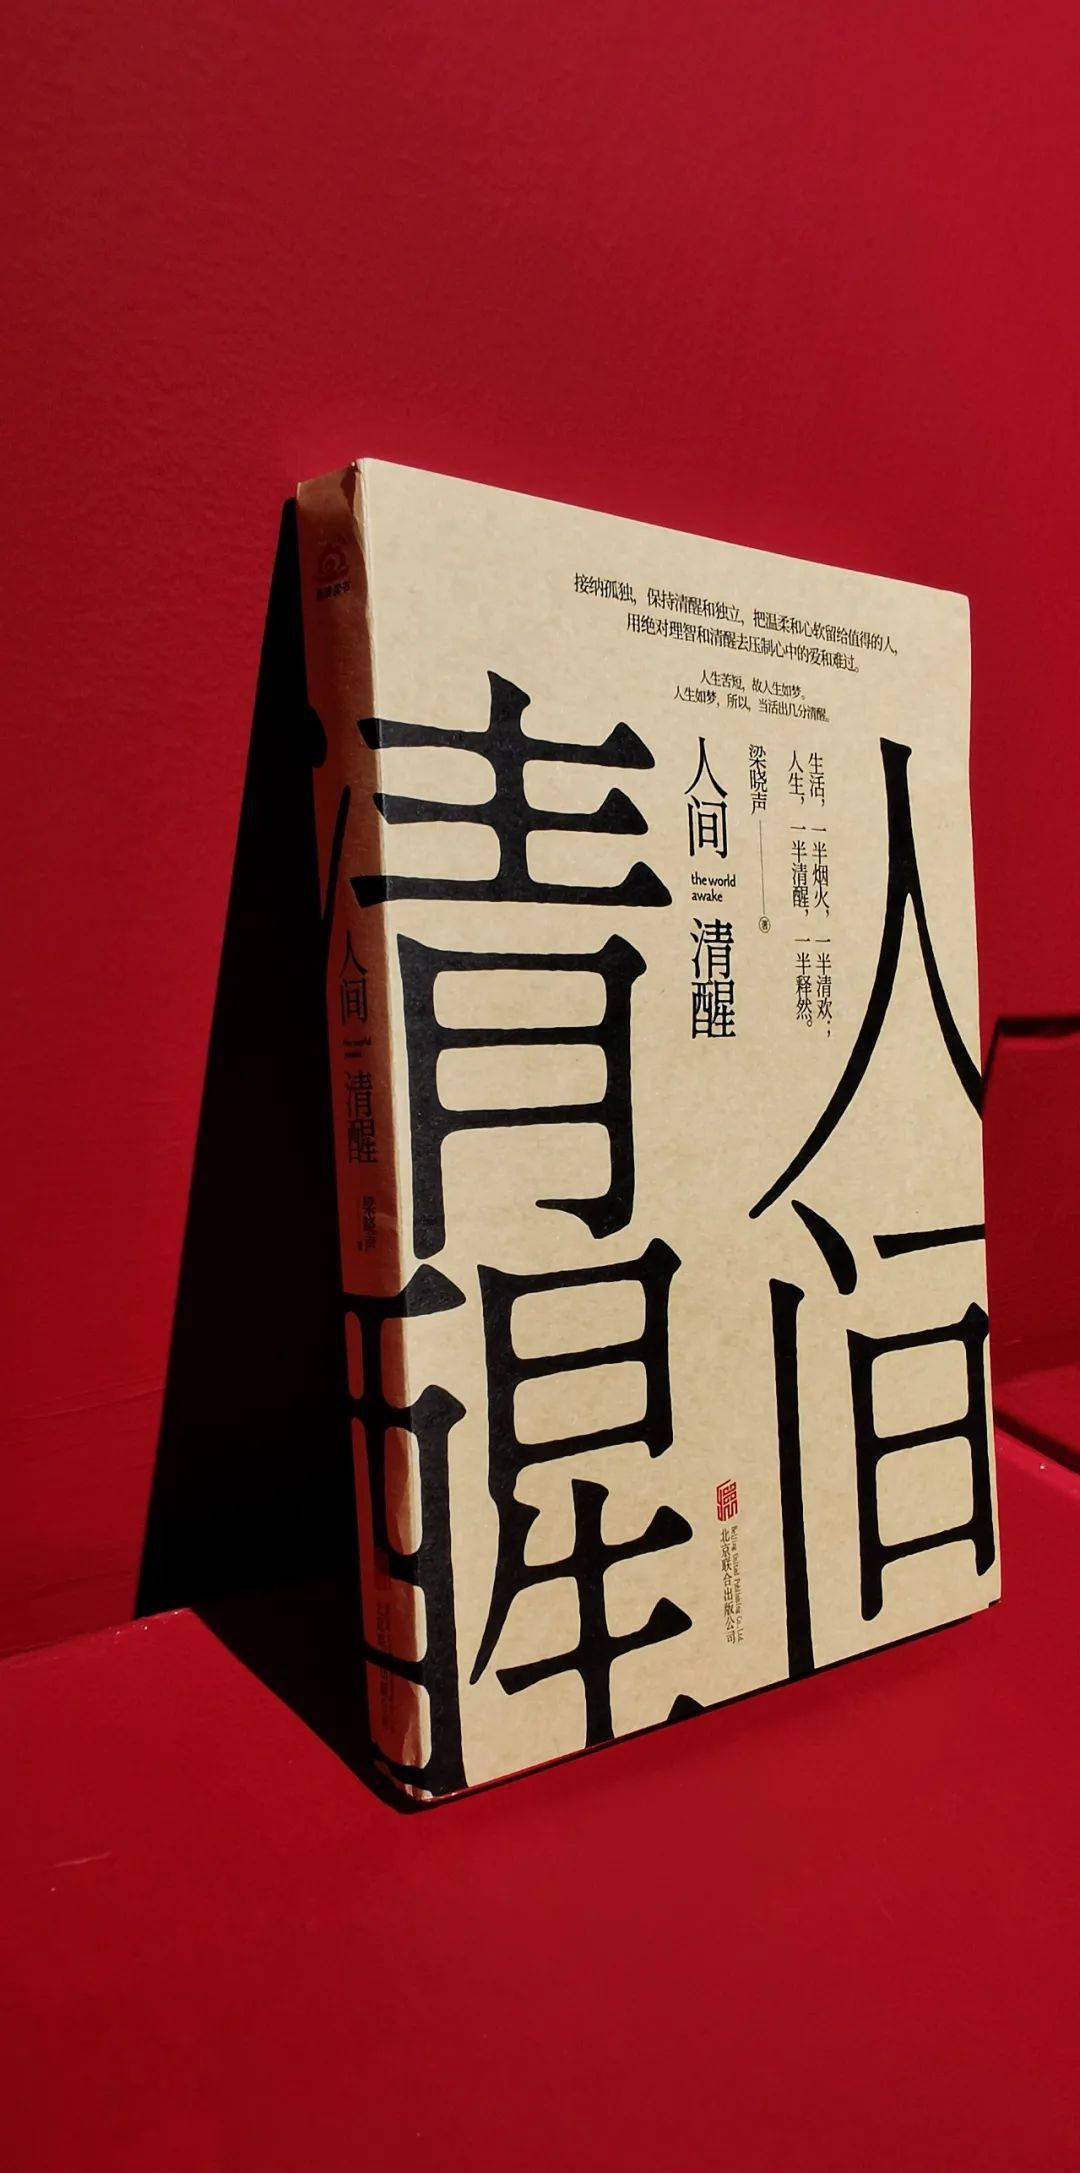 接纳孤独，保持清醒和独立，把温柔和心软留给值得的人，
用绝对理智和清醒去压制心中的爱和难过。
人生苦短，故人生如梦。
人生如梦，所以，当活出几分清醒。
人间
清醒
生活，一半烟火，一半清欢；
人生，一半清醒，一半释然。
梁晓声 著
人间
the world
awake
清醒
北京联合出版公司
Beijing United Publishing Co.,Ltd.
人间
the world
清醒
梁晓声